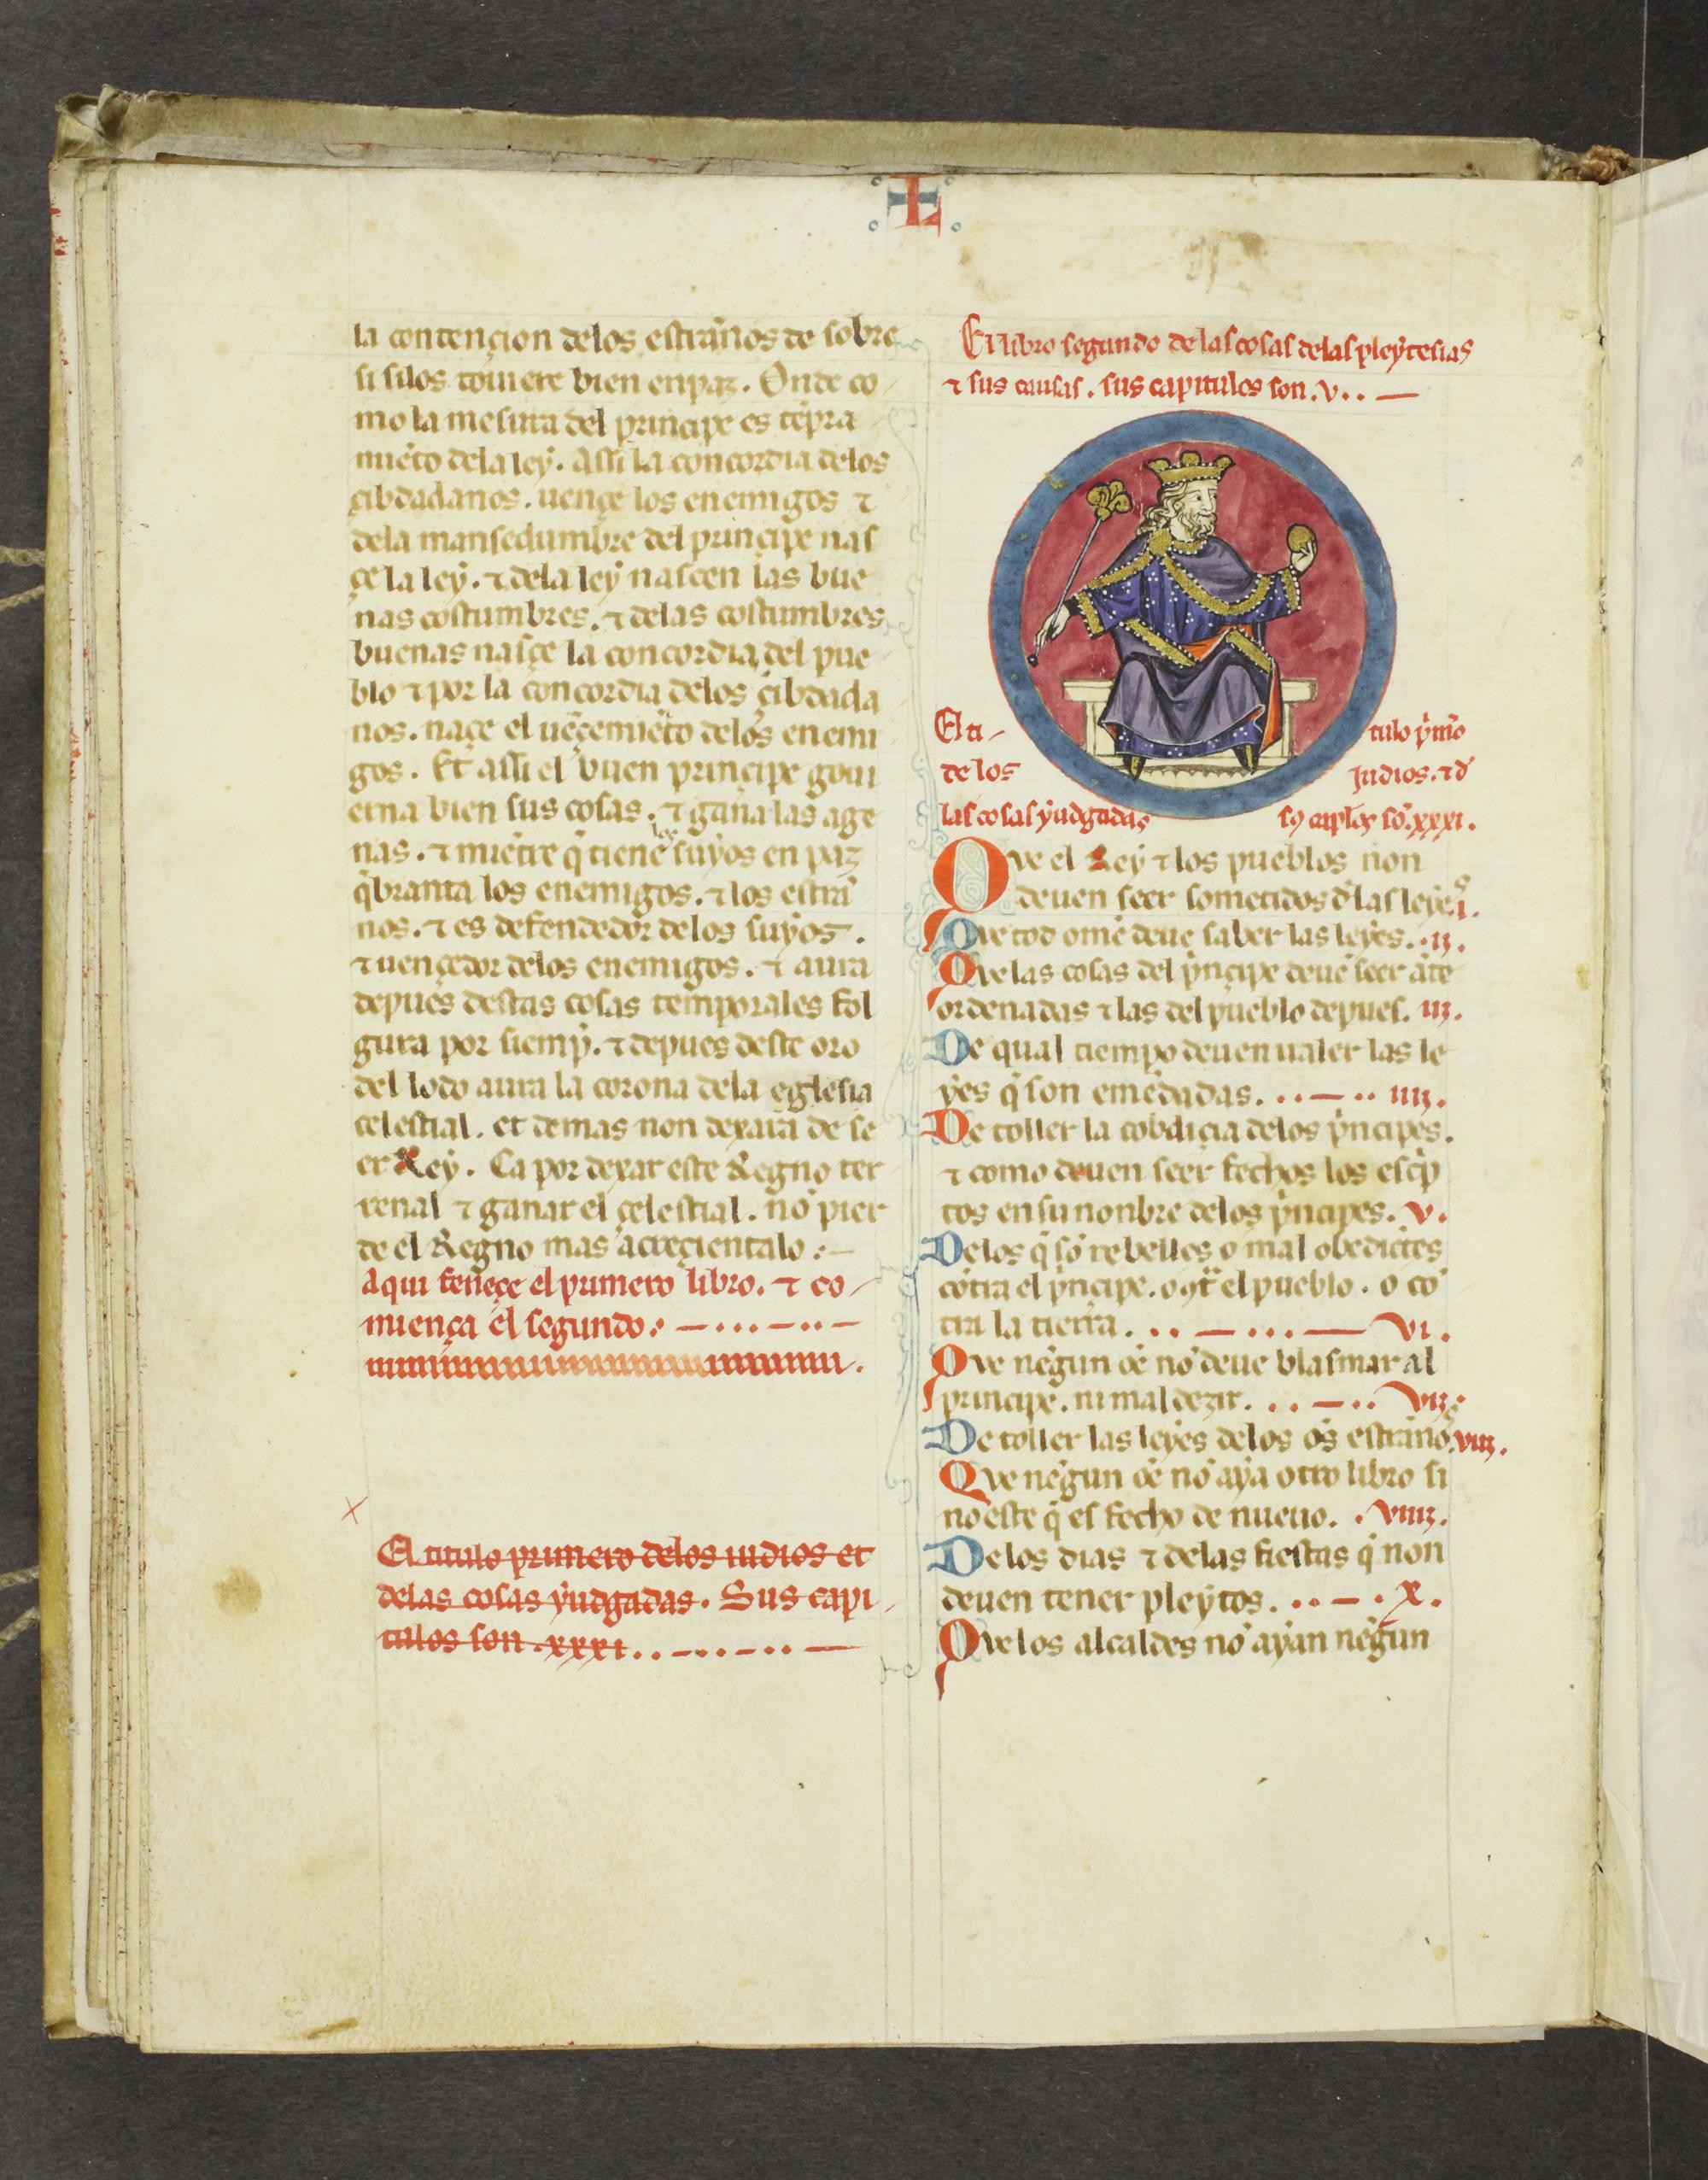 L
la contençion delos estraños de sobre
si silos touiere bien enpaz. Onde co
mo la mesura del principe es tẽpra
miẽto dela ley. assi la concordia delos
çibdadanos. uençe los enemigos ⁊
dela mansedumbre del prinçipe nas
çe la ley. ⁊ dela ley nascen las bue
nas costumbres. ⁊ delas costumbres
buenas nasçe la concordia del pue
blo ⁊ por la concordia delos çibdada
nos. naçe el uẽçemiẽto delos enemi
gos. Et assi el buen principe goui
erna bien sus cosas. ⁊ gana las age
nas. ⁊ miẽtre q̃ tiene los suyos en paz
q̃branta los enemigos. ⁊ los estra
nos. ⁊ es defendedor delos suyos.
⁊ uençedor delos enemigos. ⁊ aura
depues destas cosas temporales fol
gura por siemp̃. ⁊ depues deste oro
del lodo aura la corona dela eglesia
celestial. et demas non dexara de se
er Rey. Ca por dexar este Regno ter
renal ⁊ ganar el çelestial. nõ pier
de el Regno mas acreçientalo :-
Aqui feneçe el primero libro. ⁊ co
miença el segundo :- ... - .. -
El titulo primero delos iudios et
delas cosas yudgadas. Sus capi
tulos son .xxxi .. - .. - .. -
El libro segundo de las cosas delas pleytesias
⁊ sus causas. sus capitulos son .v.. -
El ti- tulo p̃mo
de los Judios. ⁊ d̃
las cosas yudgadas sꝯ capl̃os sõ .xxxi.
Que el Rey ⁊ los pueblos non
deuen seer sometidos d̃ las leyes .i.
Que tod ome deue saber las leyes. .ij.
Que las cosas del p̃nçipe deuẽ seer ãte
ordenadas ⁊ las del pueblo depues. iij.
De qual tiempo deuen ualer las le
yes q̃ son emẽdadas. .. - .. iiij.
De toller la cobdiçia delos p̃ncipes.
⁊ como deuen seer fechos los esc̃p
tos en su nonbre delos p̃ncipes. v.
Delos q̃ sõ rebelles o mal obediẽtes
cõtra el p̃nçipe. o ꝯt̃ el pueblo. o cõ
tra la tierra. .. - ... - vi.
Que nẽgun oẽ nõ deue blasmar al
principe. ni mal dezir. .. - .. vij.
De toller las leyes delos oẽs estraños. viij.
Que nẽgun oẽ nõ aya otro libro si
no este q̃ es fecho de nueuo. .viiij.
Delos dias ⁊ delas fiestas q̃ non
deuen tener pleytos. .. - . x.
Que los alcaldes nõ ayan nẽgun